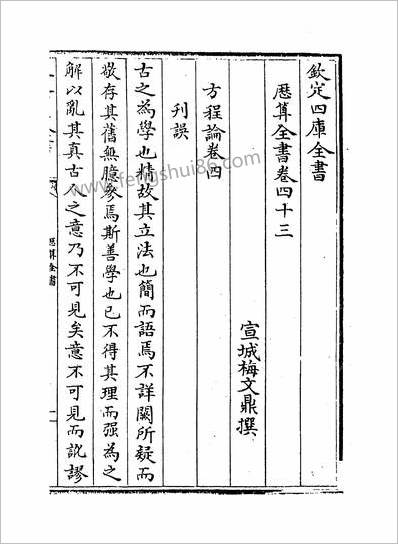 欽定四庫全書
厯算全書卷四十三
宣城梅文鼎撰
方程論卷四
刋誤
古之為學也精故其立法也簡而語焉不詳闕所疑而
敬存其舊無臆參焉斯善學也已不得其理而强為之
解以亂其真古人之意乃不可見矣意不可見而訛謬
厯算全書
www.fengshui86.com